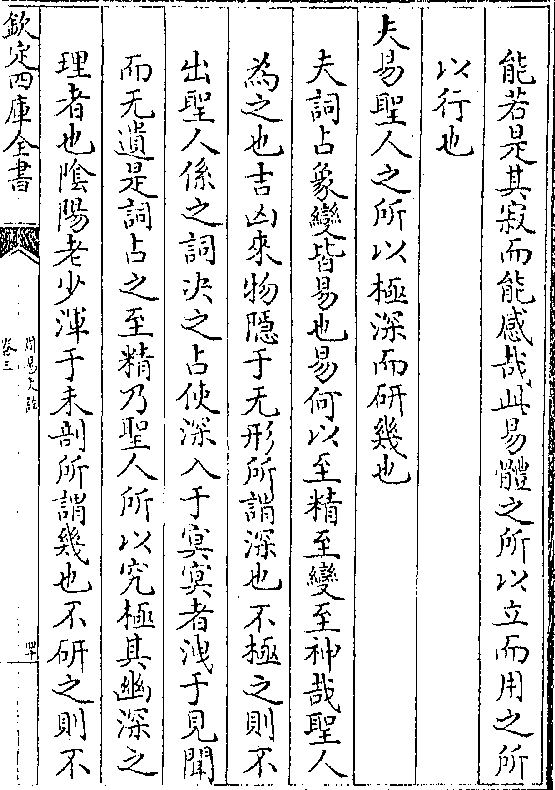 能若是其寂而能感哉此易體之所以立而用之所
以行也
夫易聖人之所以極深而研幾也
夫詞占象變皆易也易何以至精至變至神哉聖人
為之也吉凶來物隱于无形所謂深也不極之則不
出聖人係之詞决之占使深入于㝠㝠者洩于見聞
而无遺是詞占之至精乃聖人所以究極其幽深之
理者也隂陽老少渾于未剖所謂幾也不研之則不
欽定四庫全書
周易文詮
卷三
四十